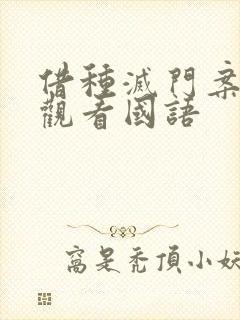 借種滅門案
觀看國語
窩是禿頂小妖